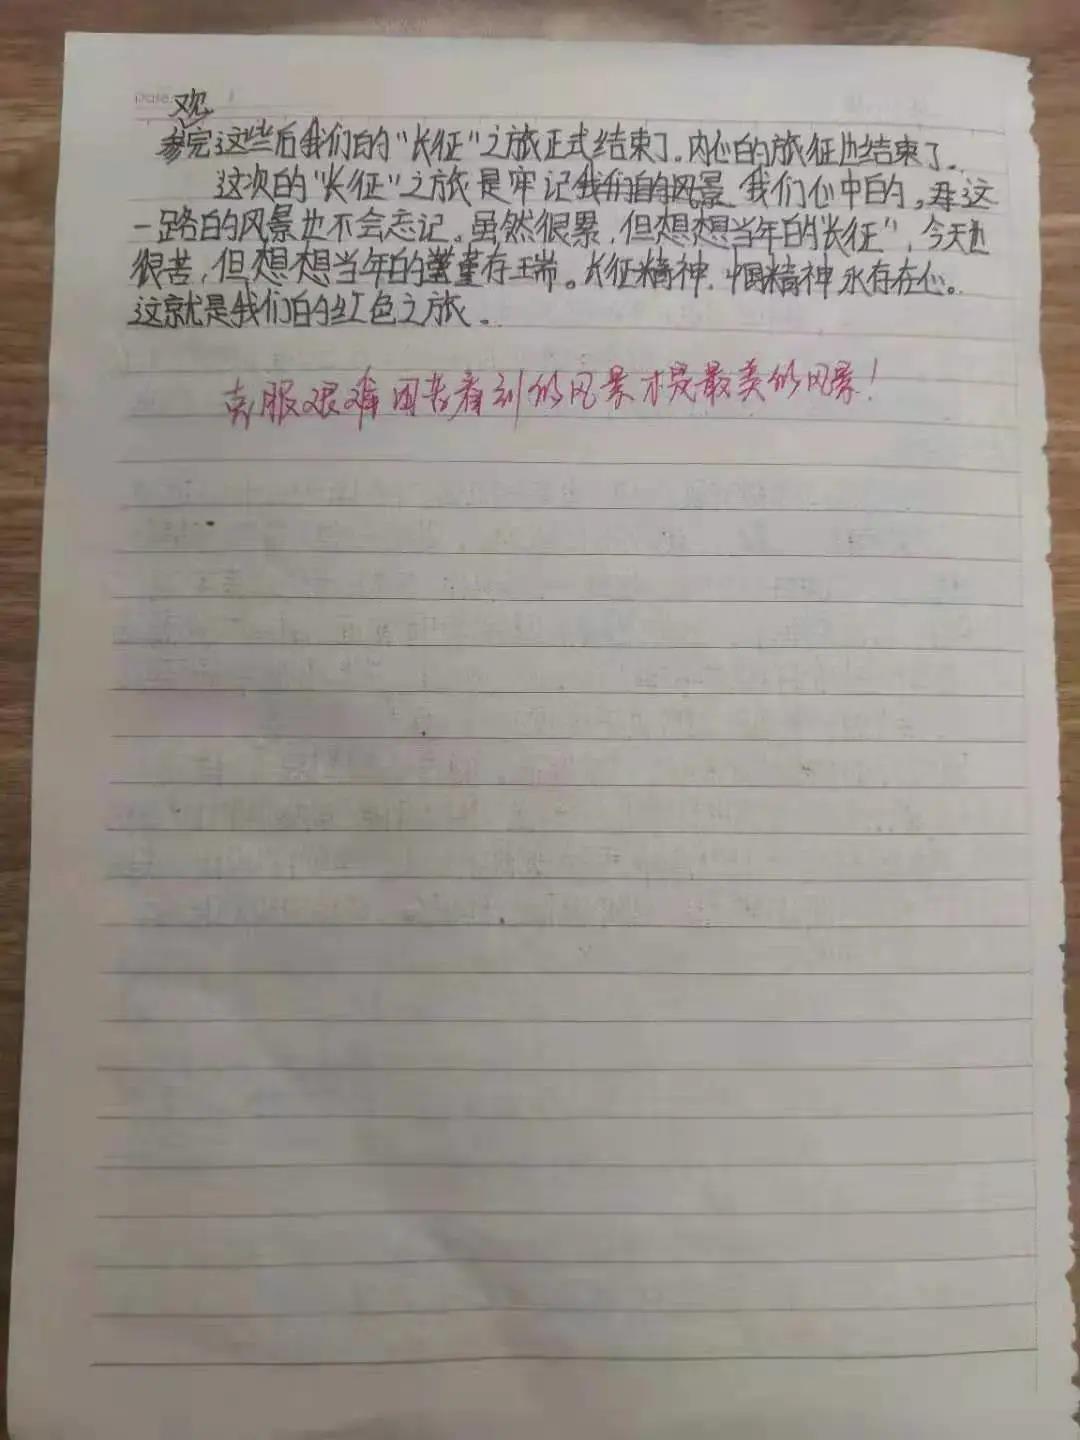 Date.
观
参完这些后我们的“长征”之旅正式结束了。内心的旅征也结束了。
这次的“长征”之旅是牢记我们的风景 我们心中的。这
一路的风景也不会忘记。虽然很累，但想想当年的“长征”，今天也
很苦，但想想当年的董存瑞。长征精神、中国精神永存在心。
这就是我们的红色之旅。
克服艰难困苦看到的风景才是最美的风景！